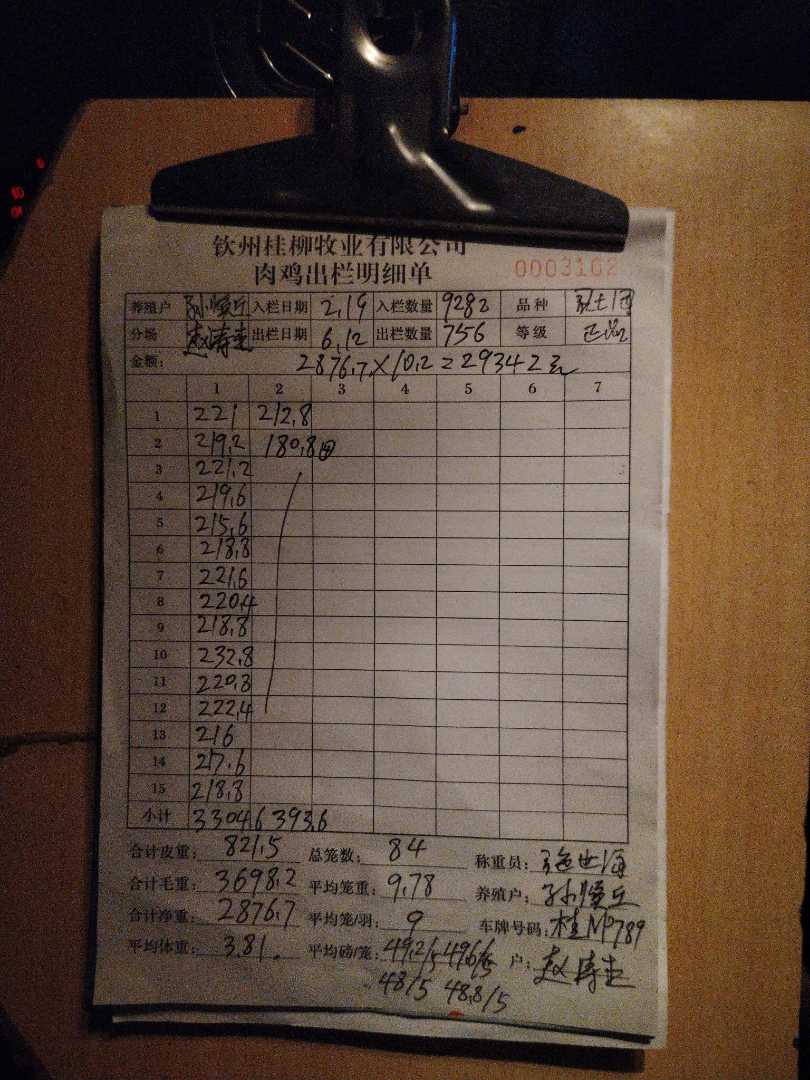 钦州桂柳牧业有限公司
肉鸡出栏明细单 0003102
养殖户 入栏日期 2.19 入栏数量 9282 品种
分场 赵涛圭 出栏日期 6.12 出栏数量 756 等级 正品
金额: 2876.7×10.2=29342元
1 2 3 4 5 6 7
1 221 212.8
2 219.2 180.8④
3 221.2
4 219.6
5 215.6
6 218.8
7 221.6
8 220.4
9 218.8
10 232.8
11 220.8
12 222.4
13 216
14 217.6
15 218.8
小计 3304.6 393.6
合计皮重: 821.5 总笼数: 84 称重员:
合计毛重: 3698.2 平均笼重: 9.78 养殖户:
合计净重: 2876.7 平均笼/羽: 9 车牌号码: 桂
平均体重: 3.81. 平均磅/笼: 49.2/5 49.6/5 户: 赵涛圭
48/5 48.8/5